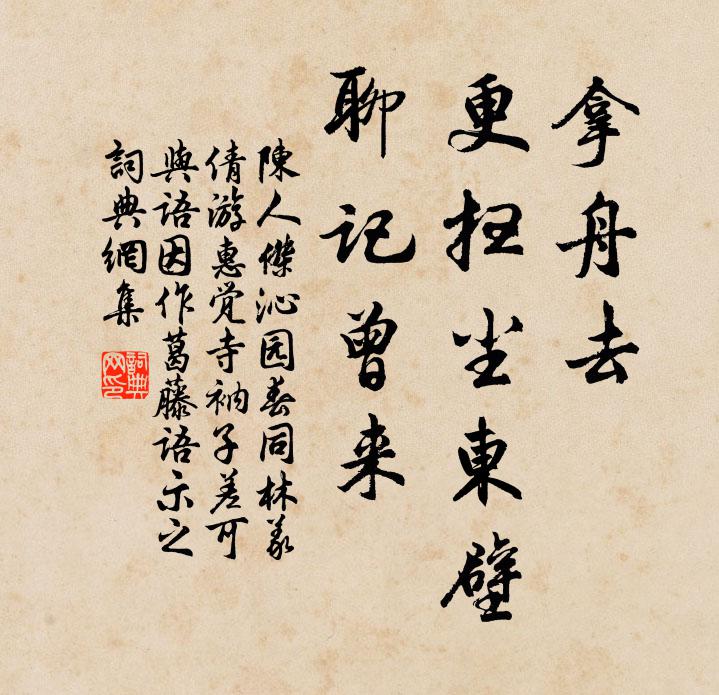 拿舟去
更扫尘東壁
聊记曾来
陳人傑沁园春同林義
倩游惠觉寺衲子差可
與语因作葛藤语示之
詞典網集
詞典
网印